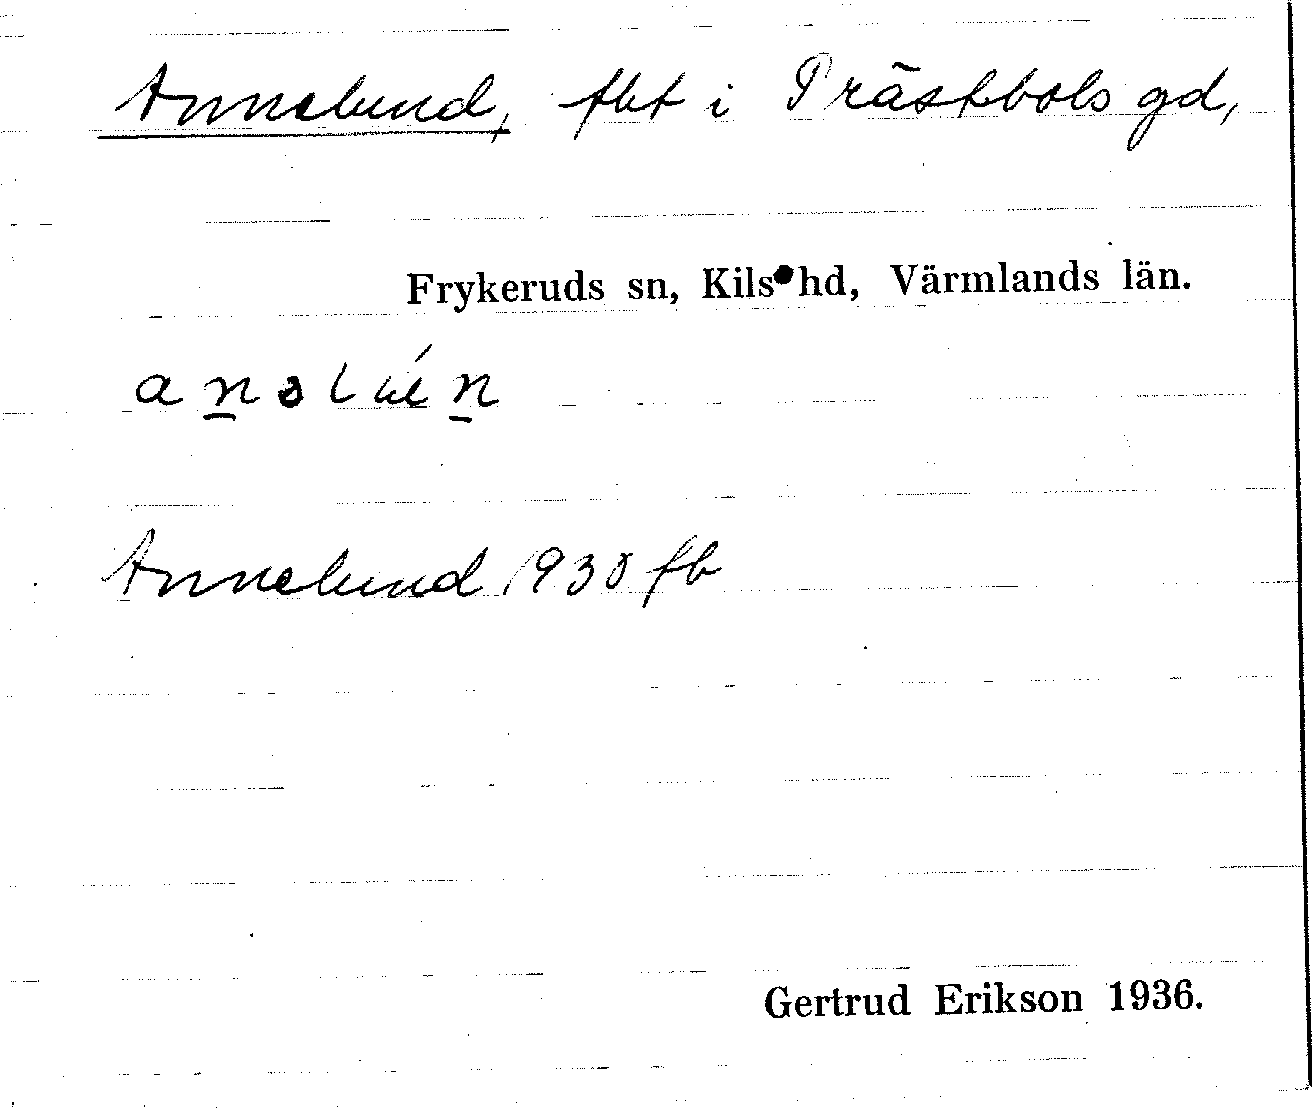 Annelund, fht i Prästbols gd,
Frykeruds sn, Kils hd, Värmlands län.
Annelund 1930 fb
Gertrud Erikson 1936.